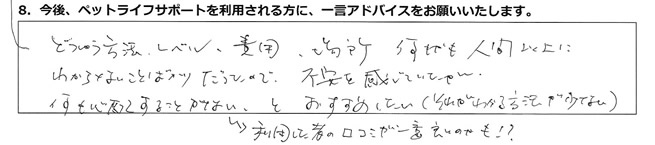 8. 今後、ペットライフサポートを利用される方に、一言アドバイスをお願いいたします。
どういう方法、レベル、費用、場所 何でも人間以上に
わからないことばかりだったので、不安を感じていたが、
何も心配することがない、と おすすめしたい(それがわかる方法が少ない)
利用した者の口コミが一番良いのかも!?